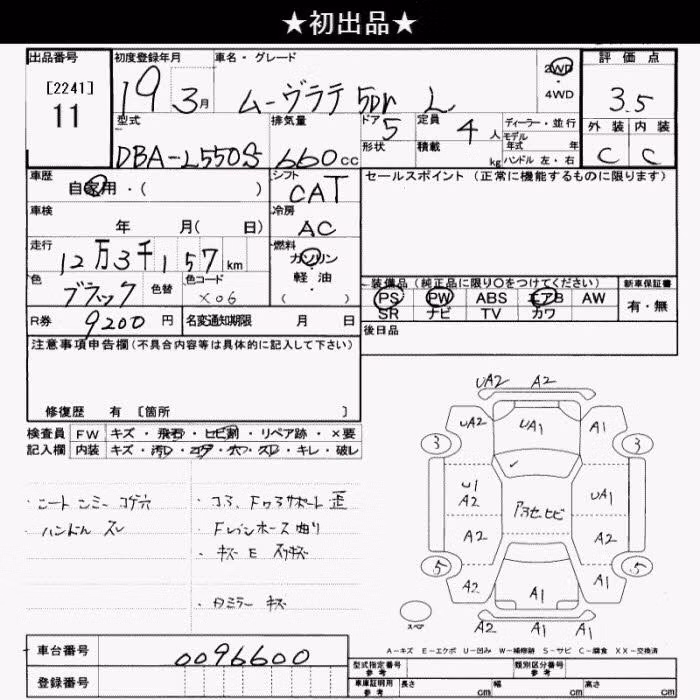 ★初出品★
出品番号 初度登録年月 車名・グレード 2WD・4WD 評価点
[2241] 11
19 3月 ムーヴラテ 5Dr L 3.5
型式 排気量 ドア 5 定員 4人 ディーラー・並行 外装 内装
モデル年式 年式
DBA-L550S 660cc 形状 積載 kg ハンドル 左・右 C C
車歴 シフト セールスポイント (正常に機能するものに限ります)
自家用・( ) CAT
車検 冷房
年 月( 日) AC
走行 燃料
12万3千157km ガソリン・軽油・( )
色 色替 色コード 装備品 (純正品に限り○をつけてください) 新車保証書
ブラック X06 PS PW ABS エアB AW 有・無
SR ナビ TV カワ
R券 9200円 名変通知期限 月 日 後日品
注意事項申告欄 (不具合内容等は具体的に記入して下さい)
修復歴 有 [箇所 ]
検査員 FW キズ・飛石・ヒビ割・リペア跡・×要
記入欄 内装 キズ・汚レ・コゲ・穴・スレ・キレ・破レ
・ハンドル スレ
・キズ E
UA2 A2
UA2 UA1 A1
3 3
U1 A2 UA1
A2 A2
5 5
A2 A1 A1
スペア A2 A1 A1
A-キズ E-エクボ U-凹み W-補修跡 S-サビ C-腐食 XX-交換済
車台番号 0096600
登録番号
型式指定番号 参考 類別区分番号 参考
車庫証明用 参考 長さ cm 幅 cm 高さ cm